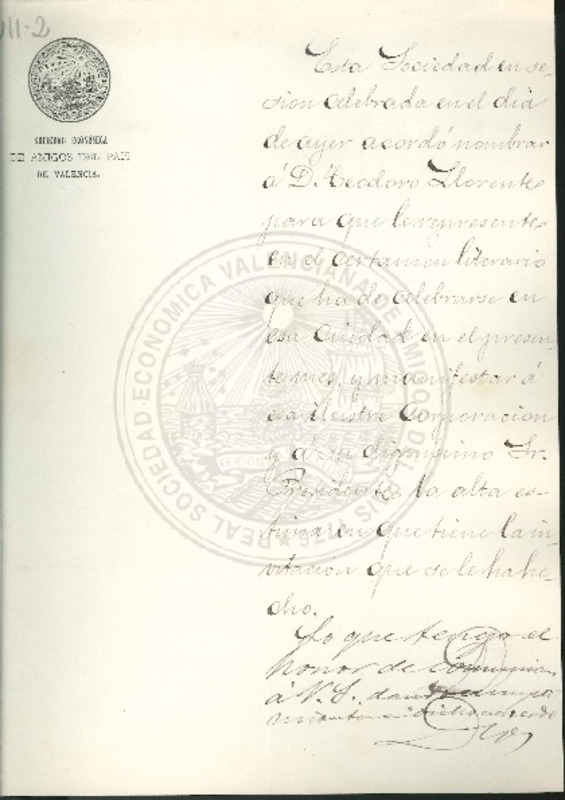 VII-2
SOCIEDAD ECONÓMICA
DE AMIGOS DEL PAIS
DE VALENCIA.
Esta Sociedad en se-
sion celebrada en el dia
de ayer acordó nombrar
á D. Teodoro Llorente
para que le represente
en el certamen literario
que ha de celebrarse en
esa Ciudad en el presen-
te mes, y manifestar á
esa Ilustre Corporacion
y á su dignisimo Sr.
Presidente la alta es-
tima en que tiene la in-
vitacion que se le ha he-
cho.
Lo que tengo el
honor de comunicar
á V. S. dando cumpli
miento á dicho acuerdo
REAL SOCIEDAD ECONOMICA VALENCIANA DE AMIGOS DEL PAIS 1776